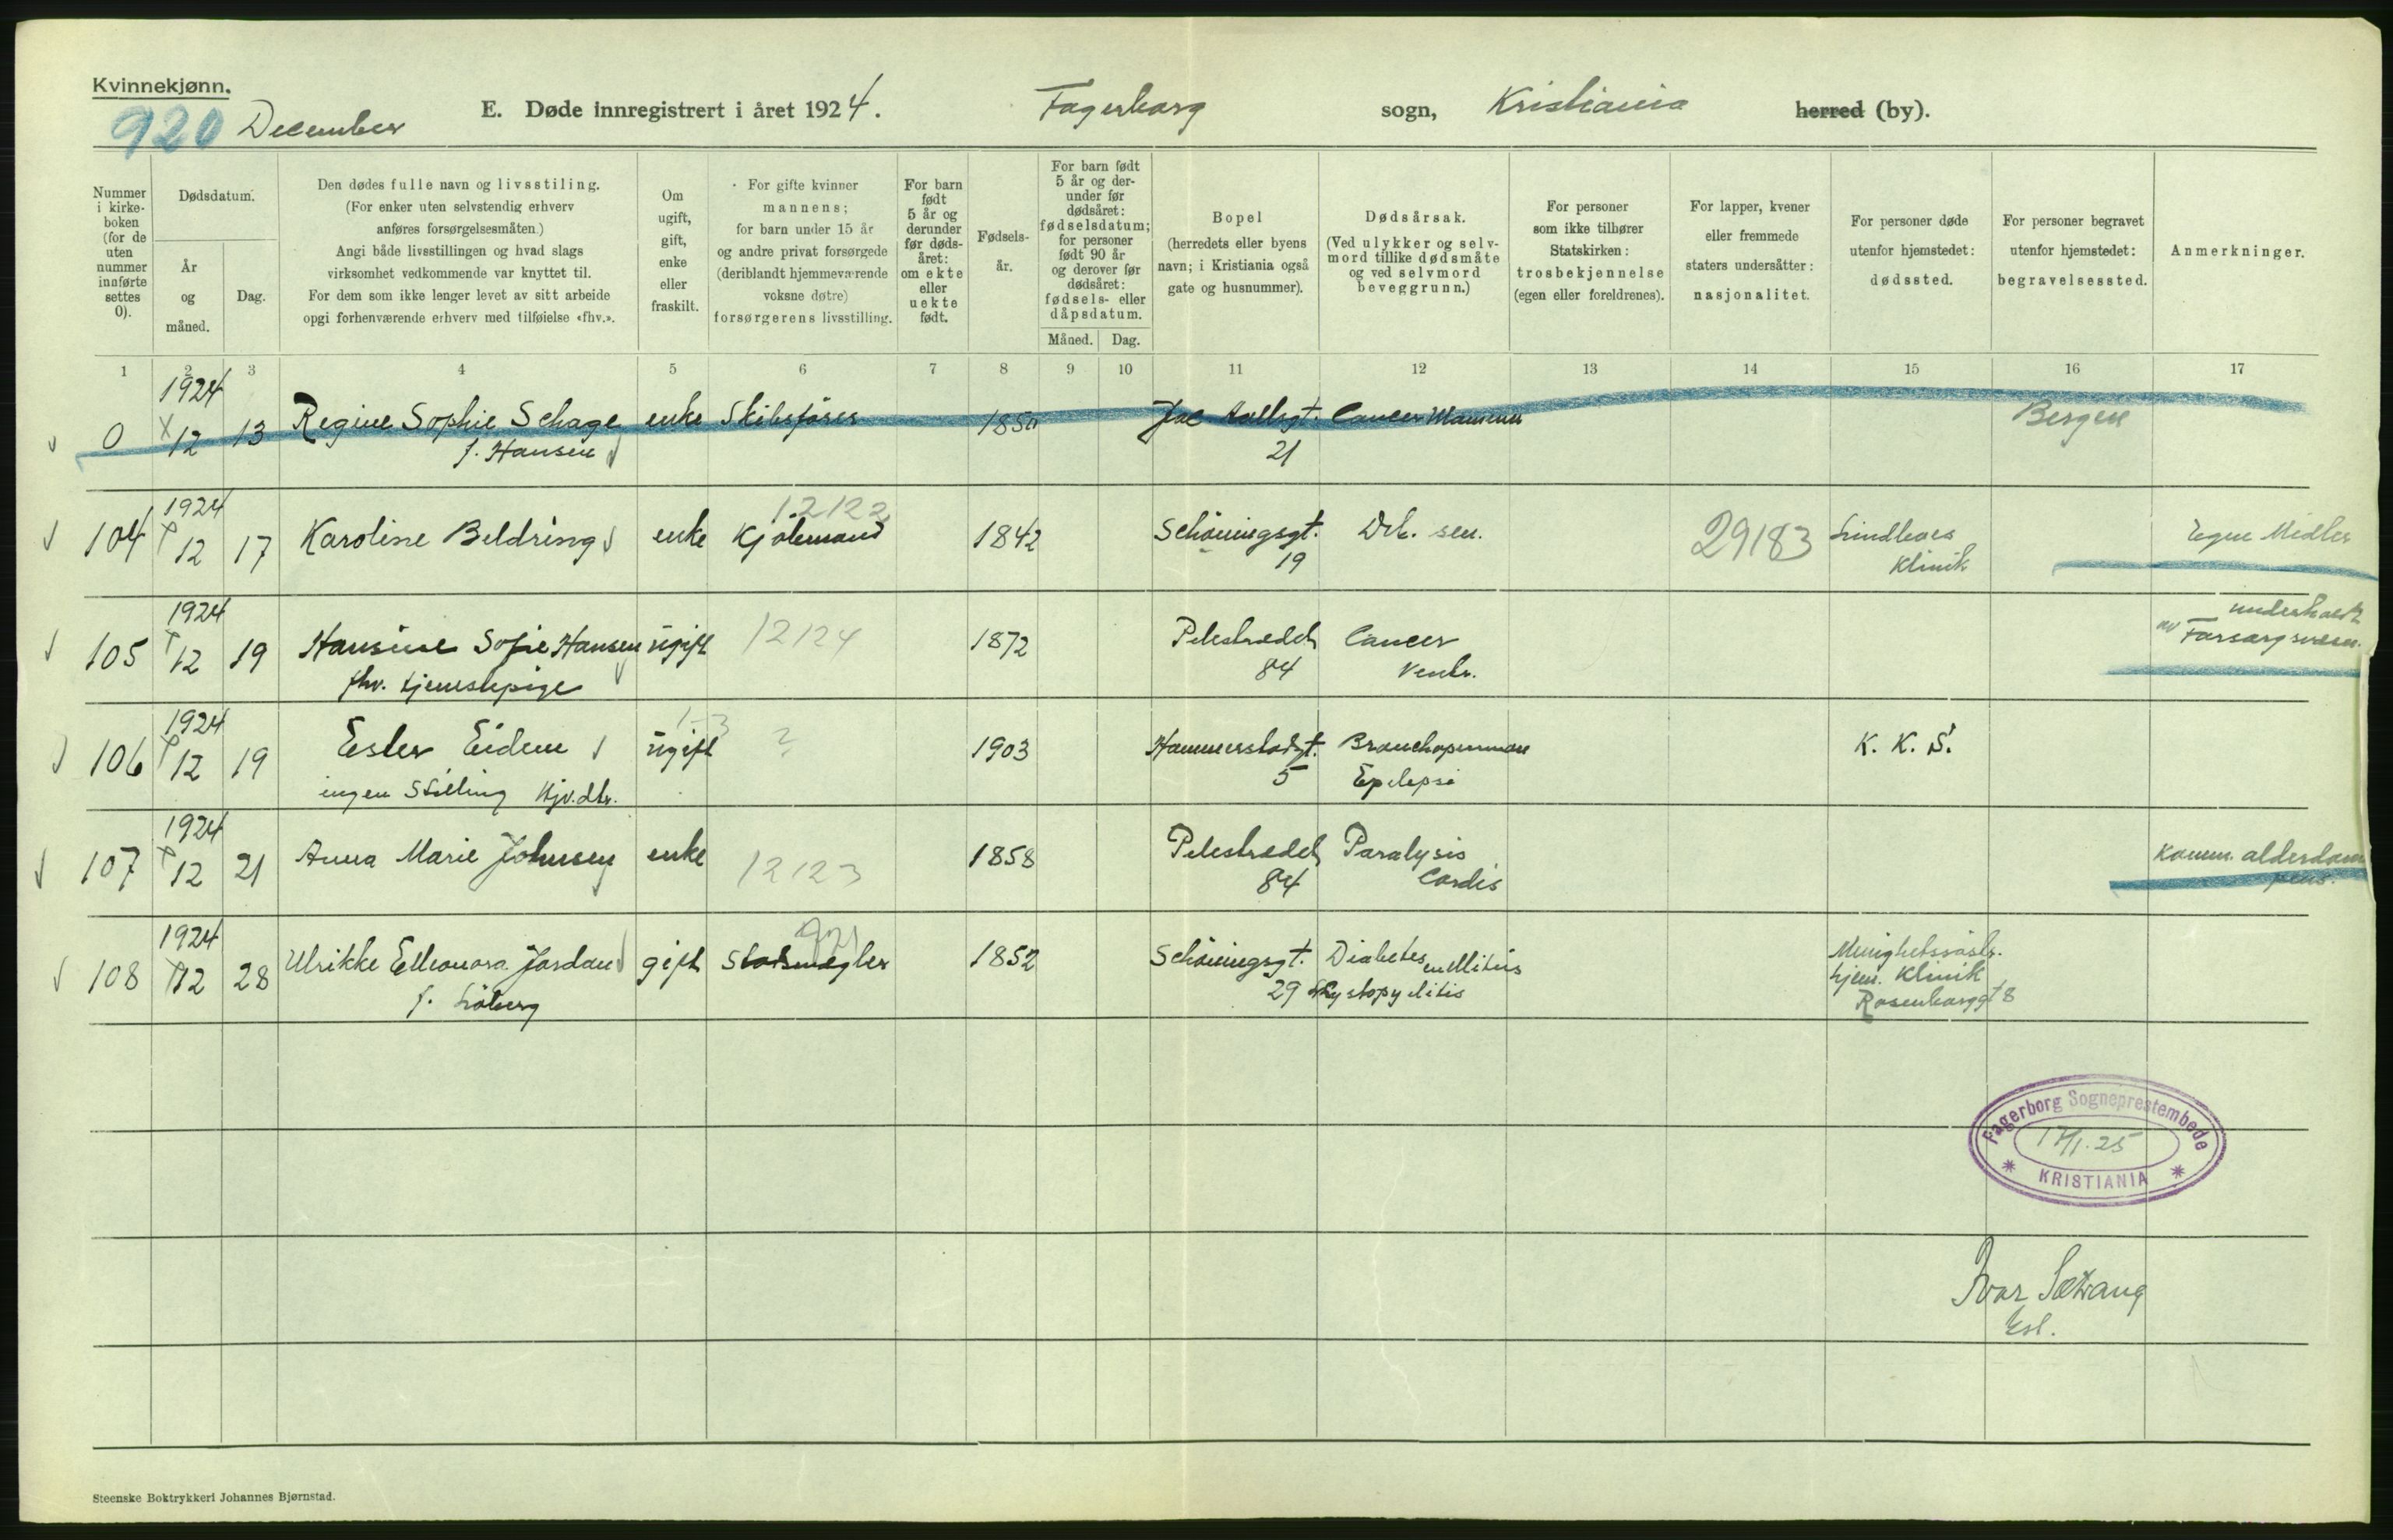 Kvinnekjønn.
920 December
E. Døde innregistrert i året 1924. Fagerborg sogn, Kristiania herred (by).
Nummer i kirke-boken (for de uten nummer innførte settes 0).
Dødsdatum.
År og måned.
Dag.
Den dødes fulle navn og livsstiling.
(For enker uten selvstendig erhverv
anføres forsørgelsesmåten.)
Angi både livsstillingen og hvad slags
virksomhet vedkommende var knyttet til.
For dem som ikke lenger levet av sitt arbeide
opgi forhenværende erhverv med tilføielse «fhv.».
Om ugift, gift, enke eller fraskilt.
For gifte kvinner
mannens;
for barn under 15 år
og andre privat forsørgede
(deriblandt hjemmeværende
voksne døtre)
forsørgerens livsstilling.
For barn født 5 år og derunder før døds-året: om ekte eller uekte født.
Fødsels-år.
For barn født 5 år og der-under før dødsåret: fødselsdatum; for personer født 90 år og derover før dødsåret: fødsels- eller dåpsdatum.
Måned. Dag.
Bopel
(herredets eller byens
navn; i Kristiania også
gate og husnummer).
Dødsårsak.
(Ved ulykker og selv-
mord tillike dødsmåte
og ved selvmord
beveggrunn.)
For personer
som ikke tilhører
Statskirken:
trosbekjennelse
(egen eller foreldrenes).
For lapper, kvener
eller fremmede
staters undersåtter:
nasjonalitet.
For personer døde
utenfor hjemstedet:
dødssted.
For personer begravet
utenfor hjemstedet:
begravelsessted.
Anmerkninger.
1 2 3 4 5 6 7 8 9 10 11 12 13 14 15 16 17
1924
0 12 13 Regine Sophie Schage enke Skibsfører 1850 Jac Aallsgt. Cancer Mammæ Bergen
f. Hansen 21
1924 12122
104 12 17 Karoline Beldring enke Kjølemand 1842 Schöningsgt. Deb. sen. 29183 Lindboes Egne Midler
19 Klinik
1924 underholdt
105 12 19 Hansine Sofie Hansen ugift 12124 1872 Pilestrædet Cancer av Forsorgsvæsen.
fhv. tjenestepige 84 Ventr.
1924
106 12 19 Ester Eidem ugift ? 1903 Hammerstadgt. Bronchopneumoni K. K. S.
ingen Stilling Hjv.dtr. 5 Epilepsi
1924
107 12 21 Anna Marie Johnsen enke 12123 1858 Pilestrædet Paralysis Komm. alderdoms
84 Cordis pens.
1924 921
108 12 28 Ulrikke Elleonora Jordan gift Statsmægler 1852 Schöningsgt. Diabetes mellitus
f. Löberg 29 Cystopyelitis
hjem. Klinik
Rosenborggt 8
Fagerborg Sogneprestembede
17/1.25
KRISTIANIA
Ivar Sætrang
Steenske Boktrykkeri Johannes Bjørnstad.